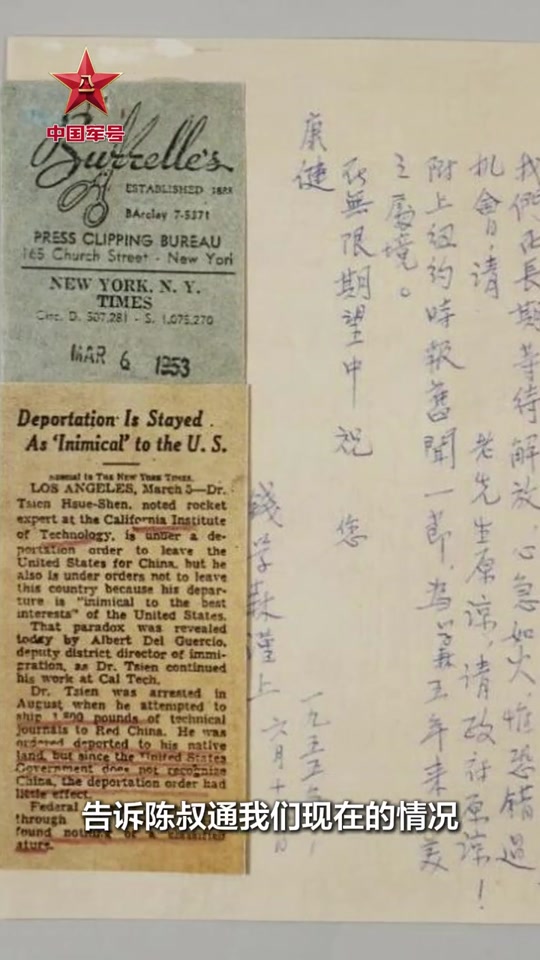 中国军号
Burrelle's
ESTABLISHED 1888
BArclay 7-5371
PRESS CLIPPING BUREAU
165 Church Street - New York
NEW YORK, N. Y.
TIMES
Circ. D. 507,281 - S. 1,075,270
MAR 6 1953
Deportation Is Stayed
As 'Inimical' to the U. S.
Special to THE NEW YORK TIMES.
LOS ANGELES, March 5—Dr.
Tsien Hsue-Shen, noted rocket
expert at the California Institute
of Technology, is under a de-
portation order to leave the
United States for China, but he
also is under orders not to leave
this country because his depar-
ture is "inimical to the best
interests" of the United States.
That paradox was revealed
today by Albert Del Guercio,
deputy district director of immi-
gration, as Dr. Tsien continued
his work at Cal Tech.
Dr. Tsien was arrested in
August when he attempted to
ship 1,800 pounds of technical
journals to Red China. He was
ordered deported to his native
land, but since the United States
Government does not recognize
China, the deportation order had
little effect.
Federal
through
found nothing of a classified
ature.
我們在長期等待解放，心急如火，惟恐錯過
機會，請老先生原諒，請政府原諒！
附上紐約時報舊聞一節，為學森五年來美
之處境。
在無限期望中祝 您
康健
錢學森謹上
一九五五
六月十日
告诉陈叔通我们现在的情况